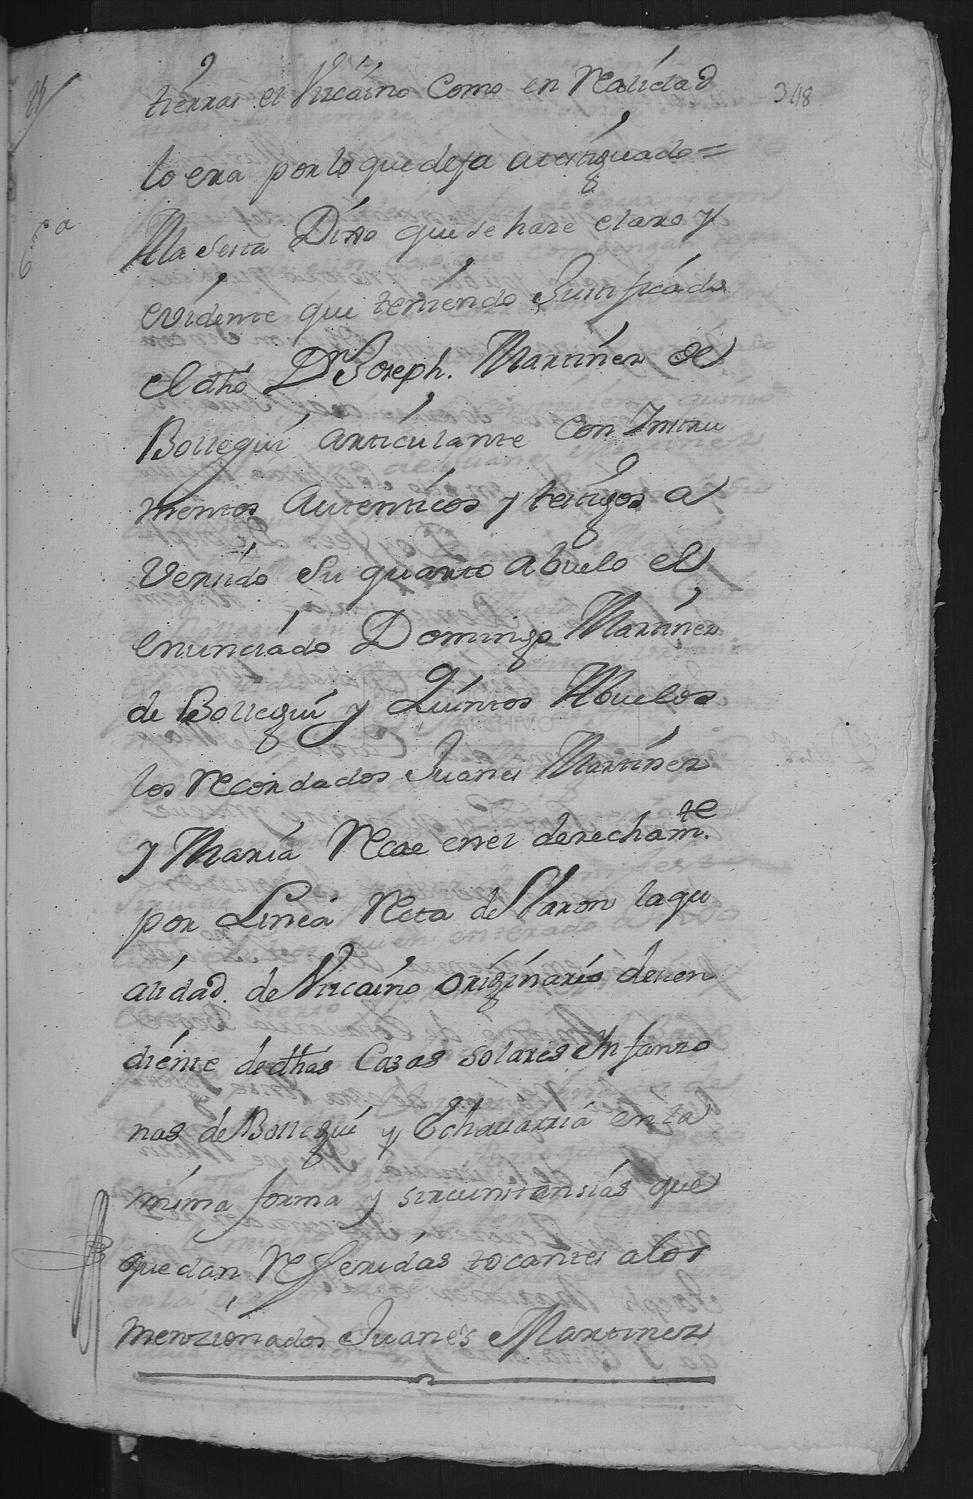 348
tierras el Viscaíno Como en Realidad
lo era por lo que deja atestiguado =
6ta
Ala sesta Dixo que se haze claro y
evidente que teniendo Justificado
el dho Dn Joseph. Martínez de
Bolleguí articulante Con Instru
mentos Autenticos y testigos a
versido su quarto Abuelo el
enunciado Domingo Martínez
de Bolleguí y Quintos Abuelos
los recordados Juanes Martínez
y María Recae enel derechamte.
por Linea Recta de Varon laqu
alidad. de Viscaíno originario desen
diente dedhas Casas solares Infanzo
nas de Bolleguí y Echavarria en la
misma forma y sircunstansias que
quedan Referidas tocantes alos
menzionados Juanes Martinez
ARCHIVO